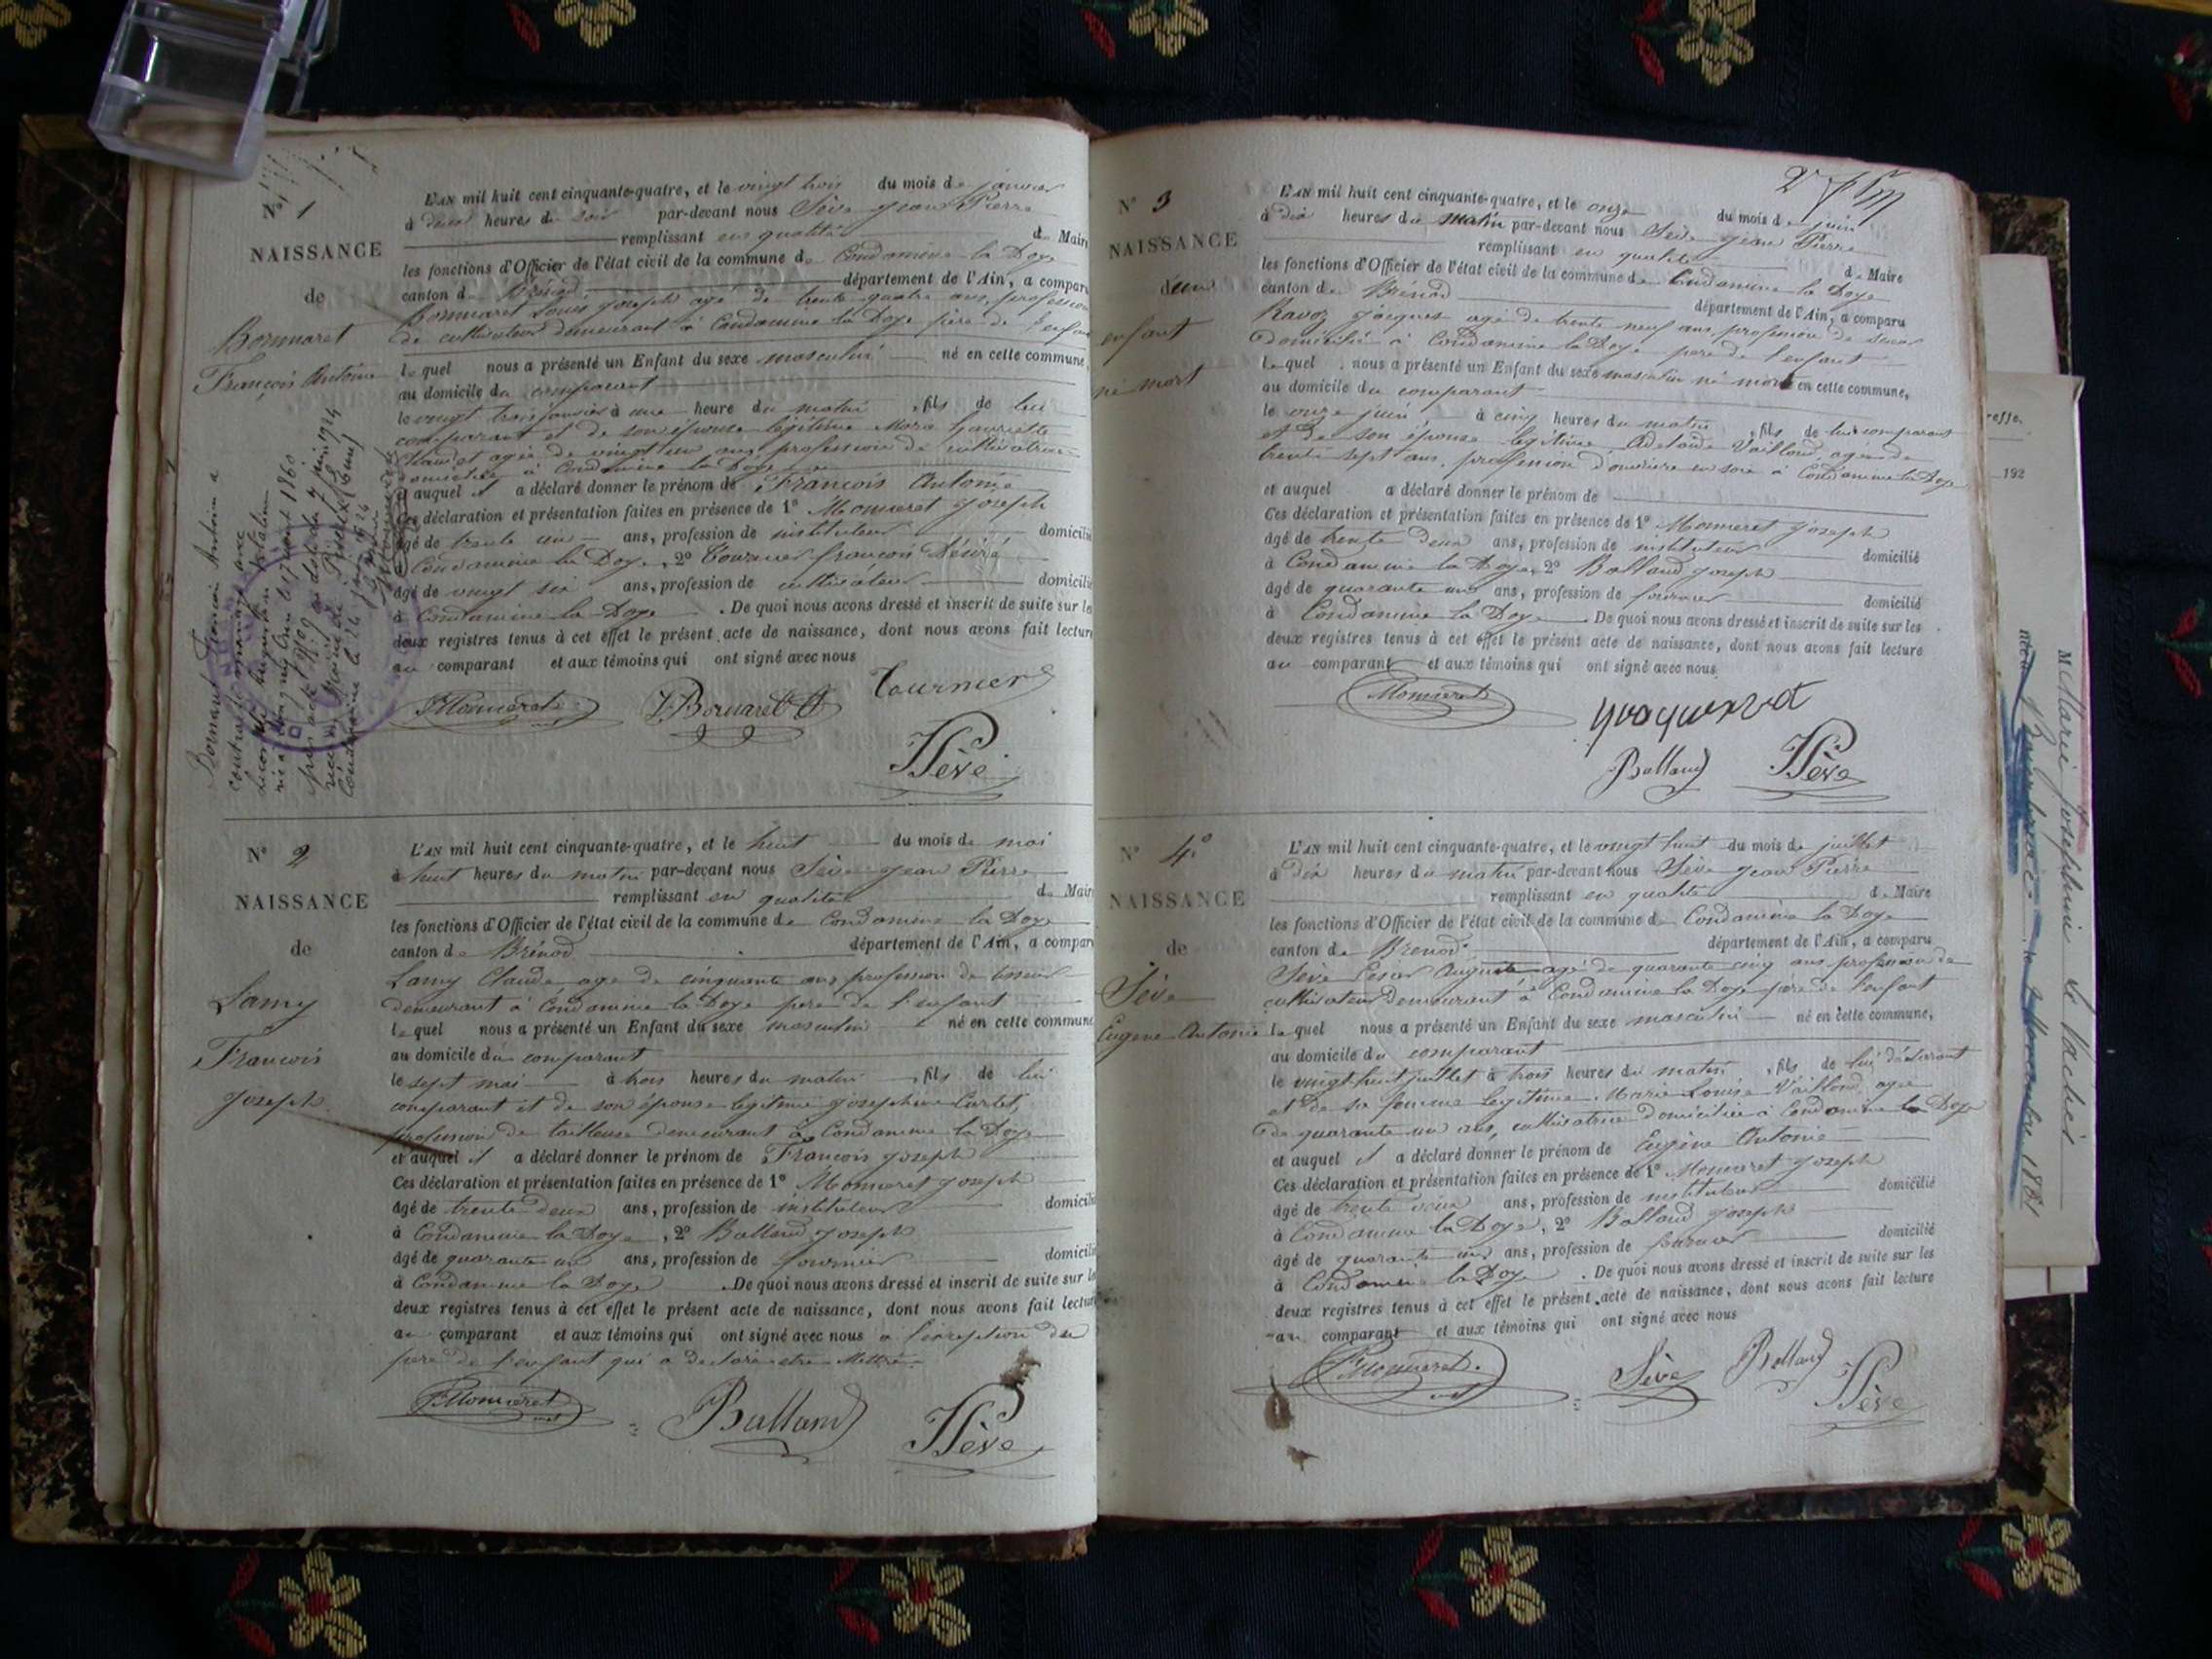 N° 1
NAISSANCE
de
Bornaret
François Antoine
L'AN mil huit cent cinquante-quatre, et le vingt trois du mois de janvier
à deux heures du soir par-devant nous Sève Jean Pierre
remplissant en qualité de Maire
les fonctions d'Officier de l'état civil de la commune de Condamine la Doye
canton de Brénod département de l'Ain, a comparu
Bornaret Louis Joseph agé de trente quatre ans, profession
de cultivateur demeurant à Condamine la Doye père de l'enfant
lequel nous a présenté un Enfant du sexe masculin né en cette commune,
au domicile du comparant
le vingt trois janvier à une heure du matin, fils de lui
comparant et de son épouse légitime Marie
agée de vingt un ans, profession de cultivatrice
domiciliée à Condamine la Doye
auquel il a déclaré donner le prénom de François Antoine
Ces déclaration et présentation faites en présence de 1° Monneret Joseph
âgé de trente un ans, profession de instituteur domicilié
Condamine la Doye, 2° Tournier françois Désiré
âgé de vingt six ans, profession de cultivateur domicilié
à Condamine la Doye. De quoi nous avons dressé et inscrit de suite sur les
deux registres tenus à cet effet le présent acte de naissance, dont nous avons fait lecture
au comparant et aux témoins qui ont signé avec nous
Monneret Bornaret Tournier
Sève
N° 2
NAISSANCE
de
Lamy
François
Joseph
L'AN mil huit cent cinquante-quatre, et le huit du mois de mai
à huit heures du matin par-devant nous Sève Jean Pierre
remplissant en qualité de Maire
les fonctions d'Officier de l'état civil de la commune de Condamine la Doye
canton de Brénod département de l'Ain, a comparu
Lamy Claude agé de cinquante ans profession de
demeurant à Condamine la Doye père de l'enfant
lequel nous a présenté un Enfant du sexe masculin né en cette commune
au domicile du comparant
le sept mai à trois heures du matin, fils de lui
comparant et de son épouse légitime Josephine Curtet,
profession de tailleuse demeurant à Condamine la Doye
et auquel il a déclaré donner le prénom de François Joseph
Ces déclaration et présentation faites en présence de 1° Monneret Joseph
âgé de trente deux ans, profession de instituteur domicilié
à Condamine la Doye, 2° Balland Joseph
âgé de quarante un ans, profession de fournier domicilié
à Condamine la Doye. De quoi nous avons dressé et inscrit de suite sur les
deux registres tenus à cet effet le présent acte de naissance, dont nous avons fait lecture
au comparant et aux témoins qui ont signé avec nous à l'exception du
père de l'enfant qui a déclaré être illettré.
Monneret Balland Sève
N° 3
NAISSANCE
d'un
enfant
né mort
L'AN mil huit cent cinquante-quatre, et le onze du mois de juin
à dix heures du matin par-devant nous Sève Jean Pierre
remplissant en qualité de Maire
les fonctions d'Officier de l'état civil de la commune de Condamine la Doye
canton de Brénod département de l'Ain, a comparu
Ravoz Jacques agé de trente neuf ans, profession de
domicilié à Condamine la Doye père de l'enfant
lequel nous a présenté un Enfant du sexe masculin né mort en cette commune,
au domicile du comparant
le onze juin, à cinq heures du matin, fils de lui comparant
et de son épouse légitime, Adelaïde Vailloud, agée de
trente sept ans, profession d'ouvrière en soie à Condamine la Doye
et auquel a déclaré donner le prénom de
Ces déclaration et présentation faites en présence de 1° Monneret Joseph
âgé de trente deux ans, profession de instituteur domicilié
à Condamine la Doye, 2° Balland Joseph
âgé de quarante un ans, profession de fournier domicilié
à Condamine la Doye. De quoi nous avons dressé et inscrit de suite sur les
deux registres tenus à cet effet le présent acte de naissance, dont nous avons fait lecture
au comparant et aux témoins qui ont signé avec nous
Monneret
Balland Sève
N° 4°
NAISSANCE
de
Sève
Eugène Antonie
L'AN mil huit cent cinquante-quatre, et le vingt huit du mois de juillet
à dix heures du matin par-devant nous Sève Jean Pierre
remplissant en qualité de Maire
les fonctions d'Officier de l'état civil de la commune de Condamine la Doye
canton de Brenod département de l'Ain, a comparu
Sève César Auguste agé de quarante cinq ans, profession de
cultivateur demeurant à Condamine la Doye père de l'enfant
lequel nous a présenté un Enfant du sexe masculin né en cette commune,
au domicile du comparant
le vingt huit juillet à trois heures du matin, fils de lui déclarant
et de sa femme légitime Marie Louise Vailloud, agée
de quarante un ans, cultivatrice domiciliée à Condamine la Doye
et auquel il a déclaré donner le prénom de Eugène Antonie
Ces déclaration et présentation faites en présence de 1° Monneret Joseph
âgé de trente deux ans, profession de instituteur domicilié
à Condamine la Doye, 2° Balland Joseph
âgé de quarante un ans, profession de fournier domicilié
à Condamine la Doye. De quoi nous avons dressé et inscrit de suite sur les
deux registres tenus à cet effet le présent acte de naissance, dont nous avons fait lecture
au comparant et aux témoins qui ont signé avec nous
Monneret Sève Balland Sève
192
M. Marie Joséphine Le Vachez